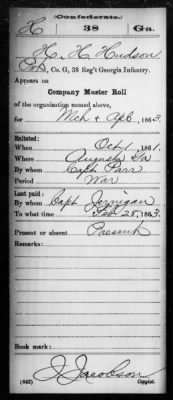 (Confederate.)
H 38 Ga.
H. H. Hudson
Pvt, Co. G, 38 Reg't Georgia Infantry.
Appears on
Company Muster Roll
of the organization named above,
for Mch & Apl, 1863.
Enlisted:
When Oct 1, 1861.
Where Augusta Ga
By whom Capt Parr
Period War
Last paid:
By whom Capt Jernigan
To what time Feb 28, 1863.
Present or absent Present
Remarks:
Book mark:
(642) J. Jacobson
Copyist.